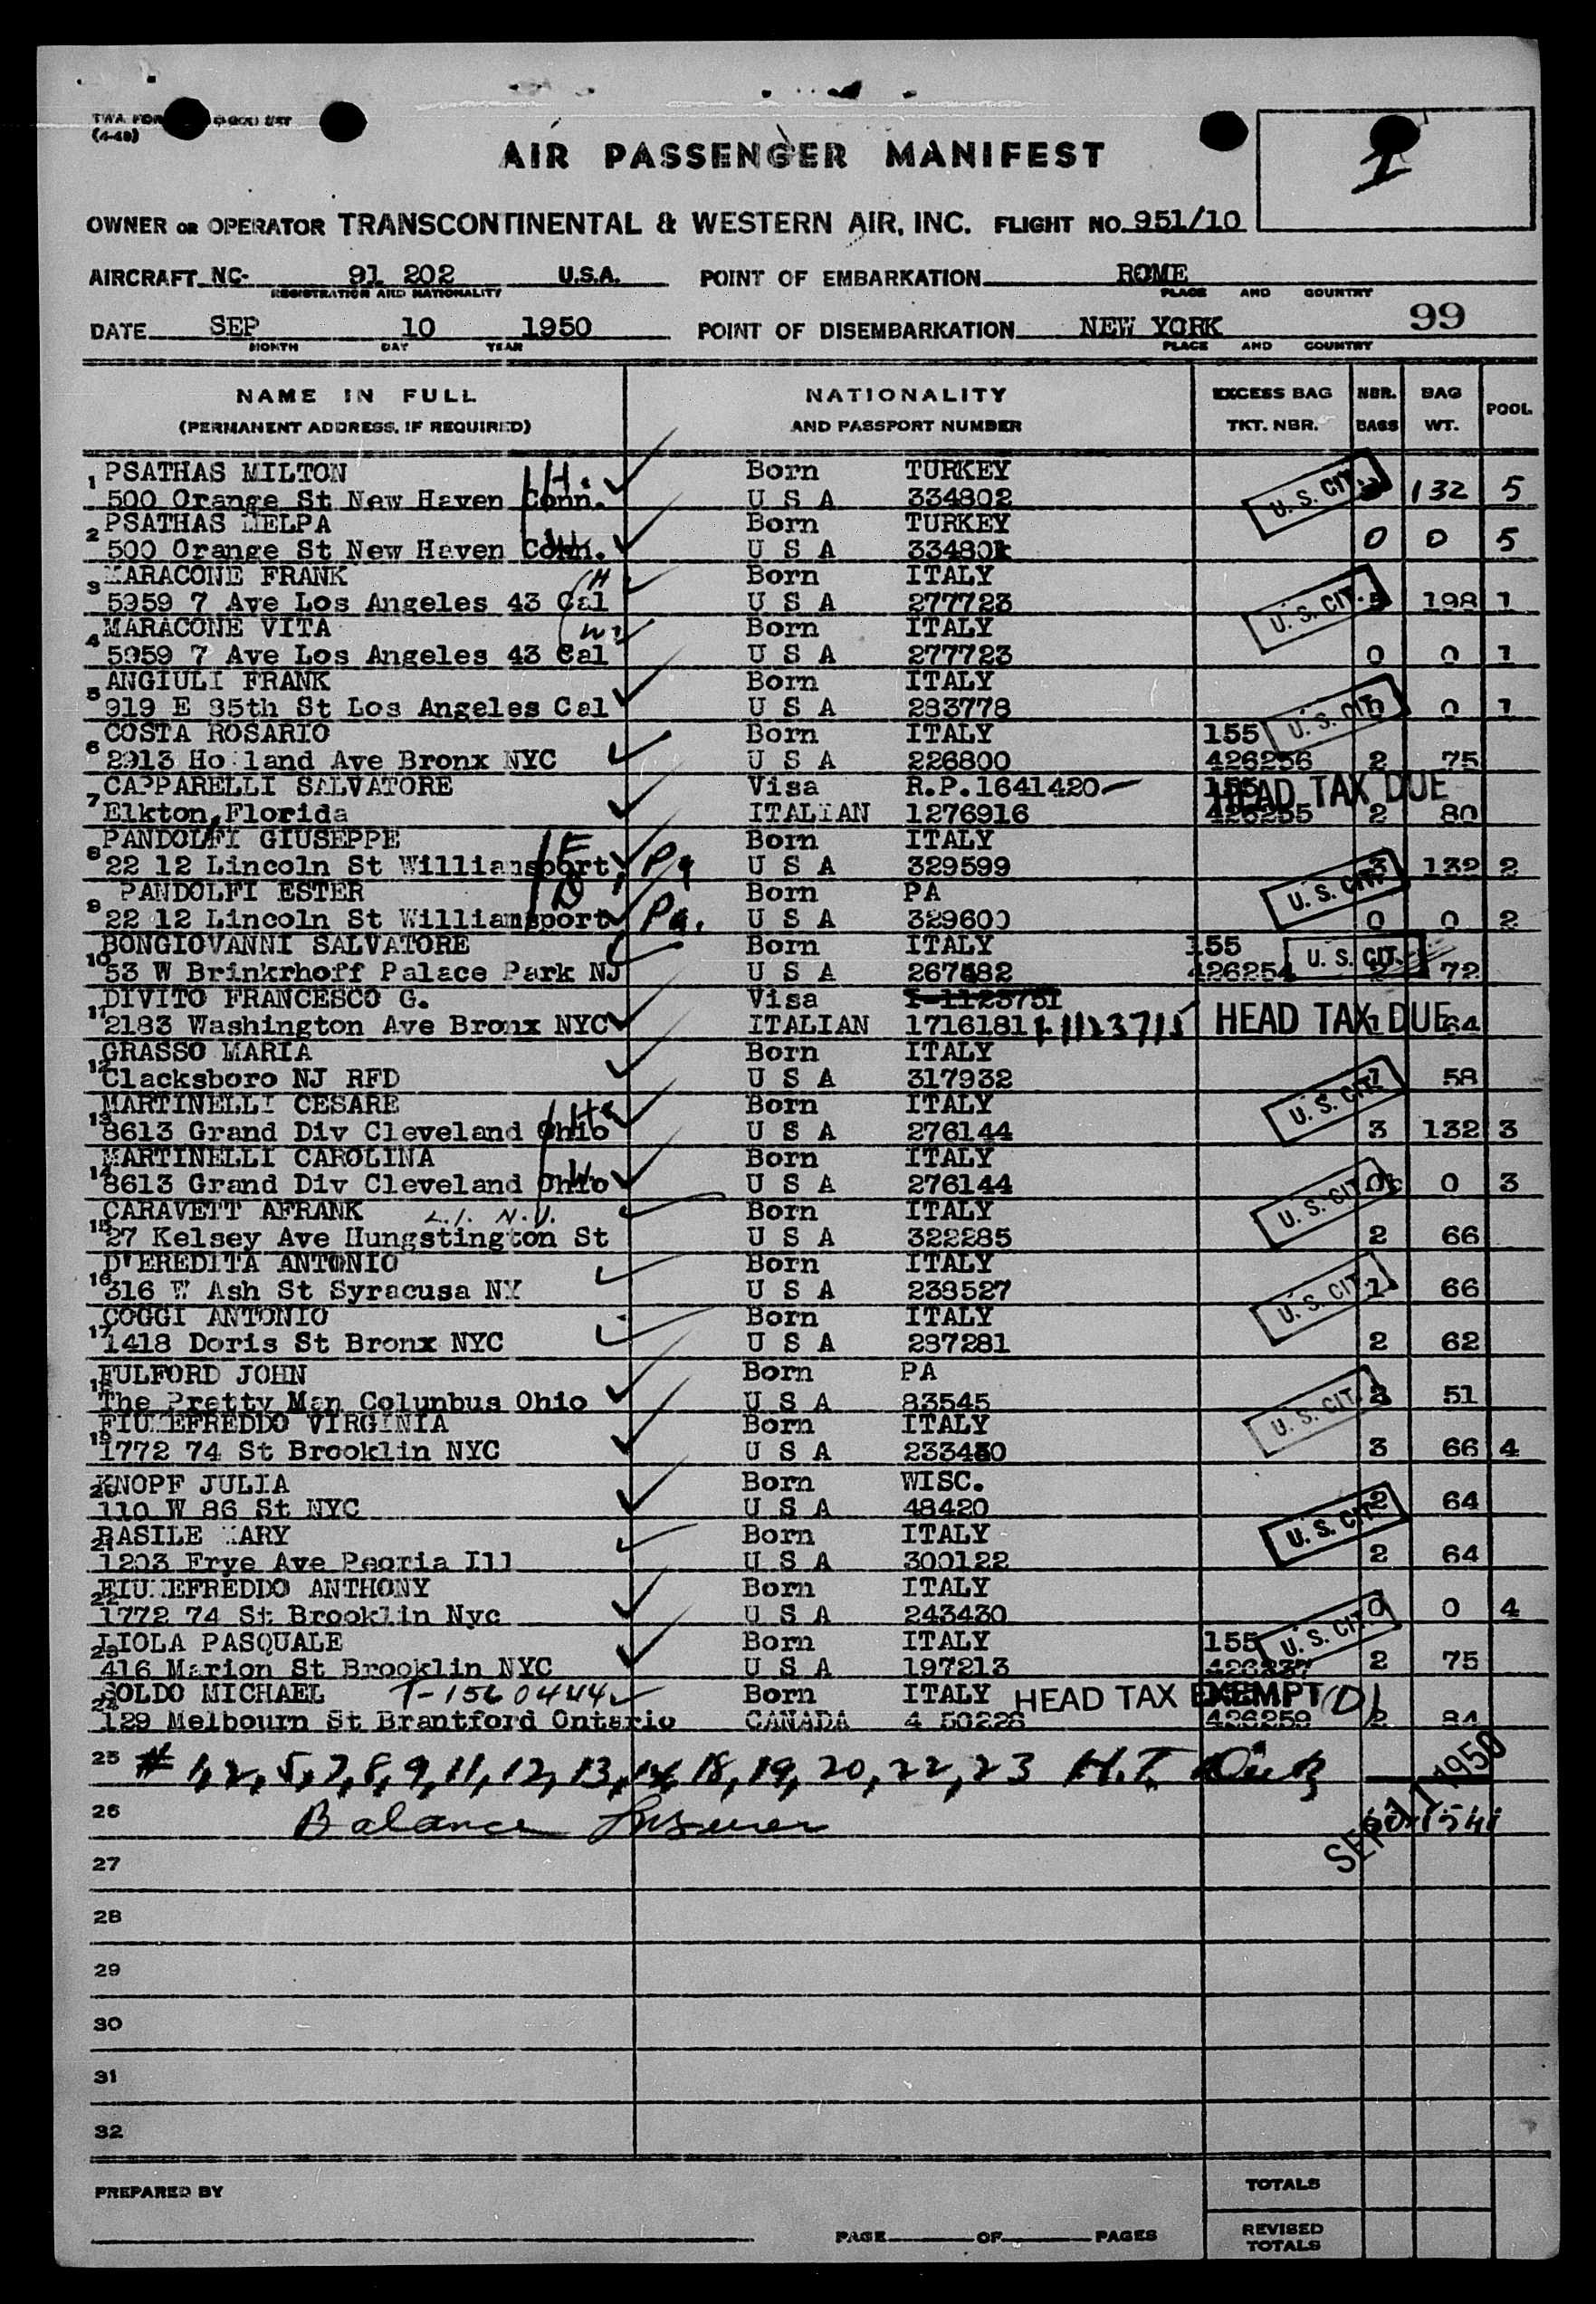 TWA FOR
(4-48)
AIR PASSENGER MANIFEST
1
OWNER OR OPERATOR TRANSCONTINENTAL & WESTERN AIR, INC. FLIGHT NO. 951/10
AIRCRAFT NC- 91 202 U.S.A. POINT OF EMBARKATION ROME
REGISTRATION AND NATIONALITY PLACE AND COUNTRY
99
DATE SEP 10 1950 POINT OF DISEMBARKATION NEW YORK
MONTH DAY YEAR PLACE AND COUNTRY
NAME IN FULL NATIONALITY EXCESS BAG NBR. BAG POOL
(PERMANENT ADDRESS, IF REQUIRED) AND PASSPORT NUMBER TKT. NBR. BAGS WT.
1 PSATHAS MILTON H. Born TURKEY U. S. CIT.
500 Orange St New Haven Conn. U S A 334802 132 5
2 PSATHAS MELPA Born TURKEY
500 Orange St New Haven Conn. W. U S A 33480 0 0 5
3 MARACONE FRANK H Born ITALY U. S. CIT.
5959 7 Ave Los Angeles 43 Cal U S A 277723 5 198 1
4 MARACONE VITA W. Born ITALY
5959 7 Ave Los Angeles 43 Cal U S A 277723 0 0 1
5 ANGIULI FRANK Born ITALY U. S. CIT.
919 E 85th St Los Angeles Cal U S A 283778 0 0 1
6 COSTA ROSARIO Born ITALY 155
2913 Holland Ave Bronx NYC U S A 226800 426256 2 75
7 CAPPARELLI SALVATORE Visa R.P.1641420 155 HEAD TAX DUE
Elkton, Florida ITALIAN 1276916 426255 2 80
8 PANDOLFI GIUSEPPE F Born ITALY
22 12 Lincoln St Williamsport, Pa U S A 329599 3 132 2
9 PANDOLFI ESTER D Born PA U. S. CIT.
22 12 Lincoln St Williamsport Pa. U S A 329600 0 0 2
10 BONGIOVANNI SALVATORE Born ITALY 155 U. S. CIT.
53 W Brinkrhoff Palace Park NJ U S A 267582 426254 2 72
11 DIVITO FRANCESCO G. Visa I-1123751
2183 Washington Ave Bronx NYC ITALIAN 1716181 I-1123715 HEAD TAX DUE 1 64
12 GRASSO MARIA Born ITALY
Clacksboro NJ RFD U S A 317932 1 58
13 MARTINELLI CESARE H. Born ITALY U. S. CIT.
8613 Grand Div Cleveland Ohio U S A 276144 3 132 3
14 MARTINELLI CAROLINA W Born ITALY
8613 Grand Div Cleveland Ohio U S A 276144 0 0 3
15 CARAVETT AFRANK L.I. N.Y. Born ITALY U. S. CIT.
27 Kelsey Ave Hungstington St U S A 322285 2 66
16 D'EREDITA ANTONIO Born ITALY
316 W Ash St Syracusa NY U S A 238527 U. S. CIT. 1 66
17 COGGI ANTONIO Born ITALY
1418 Doris St Bronx NYC U S A 287281 2 62
18 FULFORD JOHN Born PA
The Pretty Man Columbus Ohio U S A 83545 U. S. CIT. 2 51
19 FIUMEFREDDO VIRGINIA Born ITALY
1772 74 St Brooklin NYC U S A 233430 3 66 4
20 KNOPF JULIA Born WISC.
110 W 86 St NYC U S A 48420 2 64
21 BASILE MARY Born ITALY U. S. CIT.
1203 Frye Ave Peoria Ill U S A 300122 2 64
22 FIUMEFREDDO ANTHONY Born ITALY
1772 74 St Brooklin Nyc U S A 243430 0 0 4
23 LIOLA PASQUALE Born ITALY 155 U. S. CIT.
416 Marion St Brooklin NYC U S A 197213 426237 2 75
24 SOLDO MICHAEL T-1560444 Born ITALY HEAD TAX EXEMPT (D)
129 Melbourn St Brantford Ontario CANADA 4 50226 426259 2 84
25 # 1, 2, 5, 7, 8, 9, 11, 12, 13, 14, 18, 19, 20, 22, 23 H.T.
26 Balance
SEP 11 1950
27
28
29
30
31
32
PREPARED BY TOTALS
PAGE OF PAGES REVISED
TOTALS